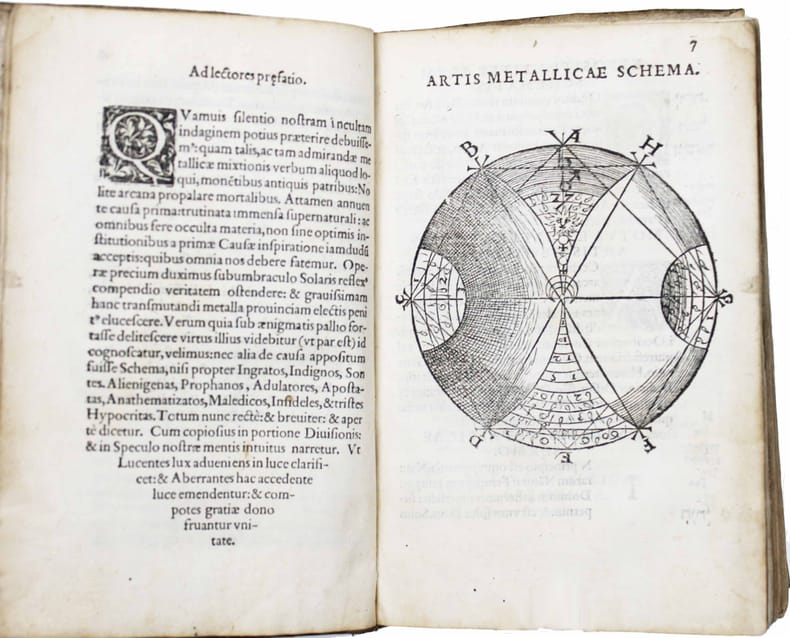 Ad lectores pręfatio.
QVamuis silentio nostram ĩ ncultam
indaginem potius præterire debuisse-
m⁹: quam talis, ac tam admirandæ me
tallicæ mixtionis verbum aliquod lo-
qui, monẽtibus antiquis patribus: No
lite arcana propalare mortalibus. Attamen annuen
te causa prima: trutinata immensa supernaturali: ac
omnibus fere occulta materia, non sine optimis in-
stitutionibus a primæ Causæ inspiratione iamdudũ
acceptis: quibus omnia nos debere fatemur. Ope-
ræ precium duximus subumbraculo Solaris reflex⁹
compendio veritatem ostendere: & grauissimam
hanc transmutandi metalla prouinciam electis peni
t⁹ elucescere. Verum quia sub ænigmatis pallio for-
tasse delitescere virtus illius videbitur (vt par est) id
cognoscatur, velimus: nec alia de causa appositum
fuisse Schema, nisi propter Ingratos, Indignos, Son
tes, Alienigenas, Prophanos, Adulatores, Aposta-
tas, Anathematizatos, Maledicos, Infideles, & tristes
Hypocritas. Totum nunc rectè: & breuiter: & aper
tè dicetur. Cum copiosius in portione Diuisionis:
& in Speculo nostræ mentis intuitus narretur. Vt
Lucentes lux adueniens in luce clarifi-
cet: & Aberrantes hac accedente
luce emendentur: & com-
potes gratiæ dono
fruantur vni-
tate.
7
ARTIS METALLICAE SCHEMA.
B
A
H
C
D
E
F